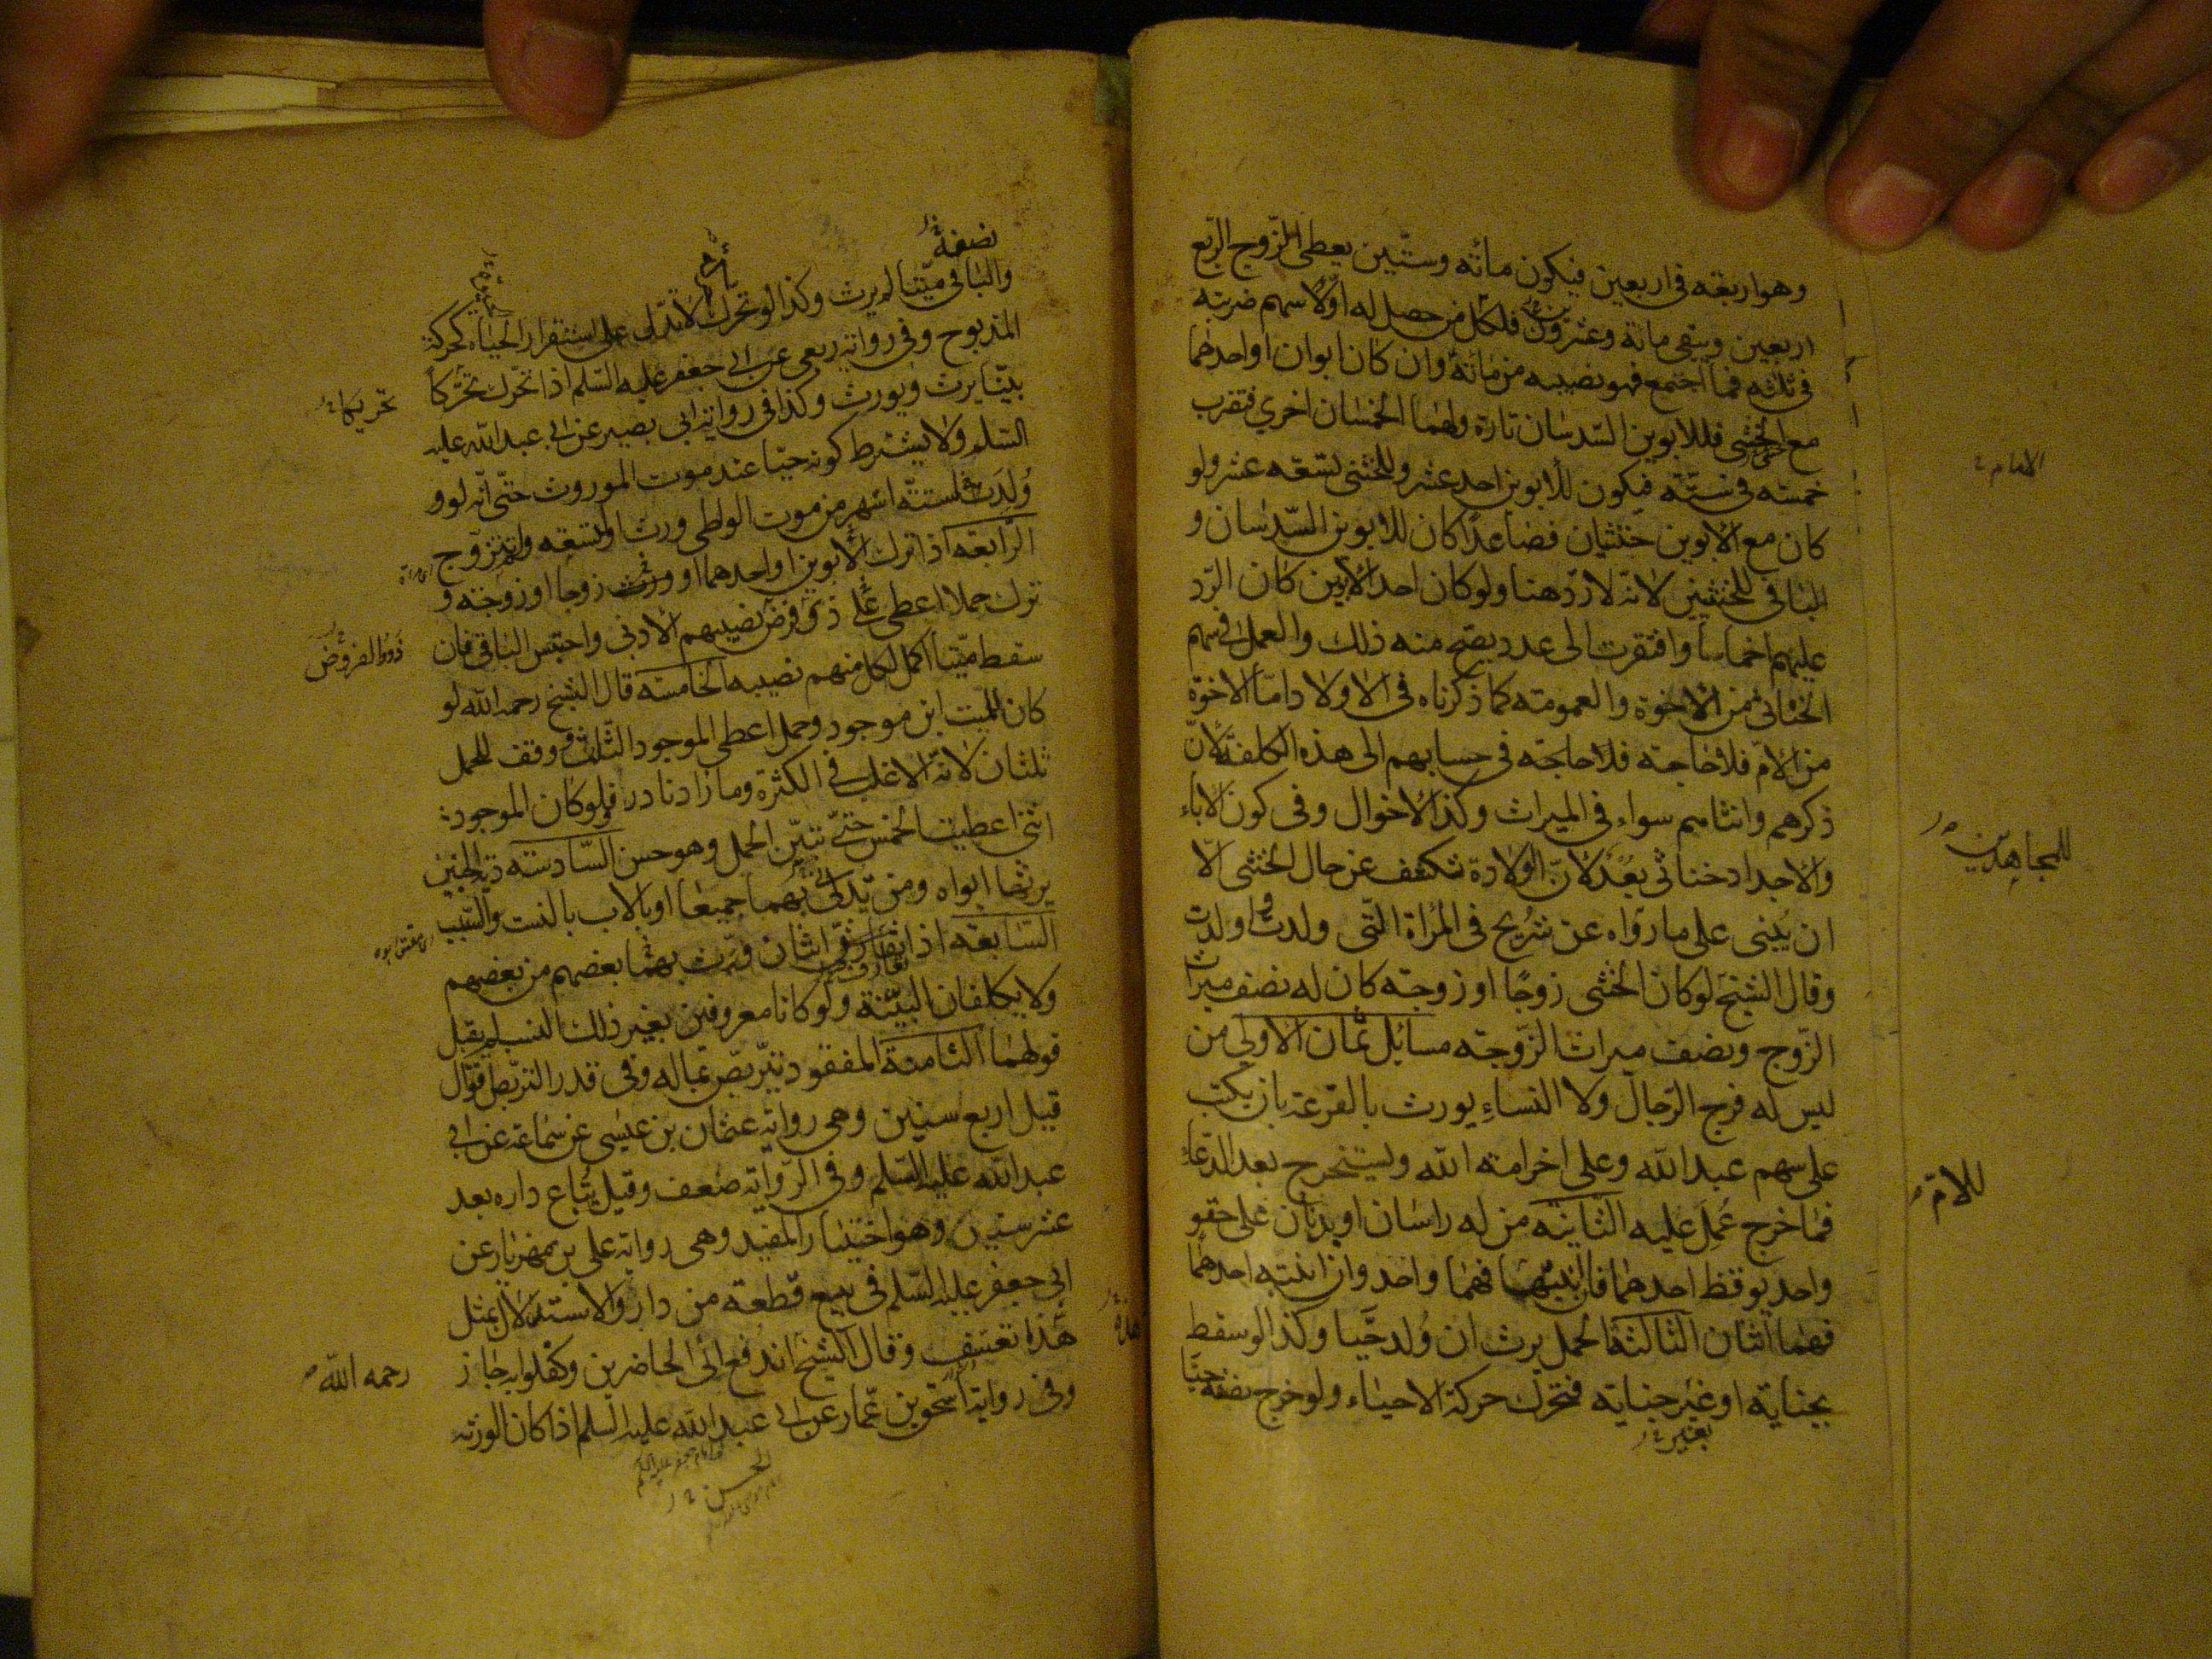 وهو اربعة في اربعين فيكون مائة وستين يعطى الزوج الربع
اربعين ويبقى مائة وعشرون فلكل من حصل له اولا سهم ضربته
في ثلثة فما اجتمع فهو نصيبه من مائة وان كان ابوان او احدهما
مع الخنثى فللابوين السدسان تارة ولهما الخمسان اخرى فتضرب
خمسة في ستة فيكون للابوين احد عشر وللخنثى تسعة عشر ولو
كان مع الابوين خنثيان فصاعدا كان للابوين السدسان و
الباقي للخنثيين لانه لا رد هنا ولو كان احد الابوين كان الرد
عليهم اخماسا وافتقرت الى عدد يصح منه ذلك والعمل في سهم
الخناثى من الاخوة والعمومة كما ذكرناه في الاولاد اما الاخوة
من الام فلا حاجة في حسابهم الى هذه الكلفة لان
ذكرهم وانثاهم سواء في الميراث وكذا الاخوال وفي كون الاباء
والاجداد خناثى بعد لان الولادة تكشف عن حال الخنثى الا
ان يبنى على ما رواه عن شريح في المراة التي ولدت واولدت
وقال الشيخ لو كان الخنثى زوجا او زوجة كان له نصف ميراث
الزوج ونصف ميراث الزوجة مسائل ثمان الاولى من
ليس له فرج الرجال ولا النساء يورث بالقرعة بان يكتب
على سهم عبد الله وعلى اخر امة الله ويستخرج بعد الدعاء
فما خرج عمل عليه الثانية من له راسان او بدنان على حقو
واحد يوقظ احدهما فان انتبها فهما واحد وان انتبه احدهما
فهما اثنان الثالثة الحمل يرث ان ولد حيا وكذا لو سقط
بجناية او غير جناية فتحرك حركة الاحياء ولو خرج نصفه حيا
بغير
الامام
للمجاهدين
للام
نصفه
والباقي ميتا لم يرث وكذا لو تحرك لا تدل على استقرار الحياة كحركة
المذبوح وفي رواية ربعي عن ابي جعفر عليه السلم اذا تحرك تحركا
بينا يرث ويورث وكذا في رواية ابي بصير عن ابي عبد الله عليه
السلم ولا يشترط كونه حيا عند موت الموروث حتى انه لو و
ولدت لستة اشهر من موت الواطي ورث او لتسعة ولم تتزوج
الرابعة اذا ترك الابوين او احدهما او زوجا او زوجة و
ترك حملا اعطي ذي فرض نصيبهم الادنى واحتبس الباقي فان
سقط ميتا اكمل لكل منهم نصيبه الخامسة قال الشيخ رحمه الله لو
كان للميت ابن موجود وحمل اعطي الموجود الثلث ووقف للحمل
ثلثان لانه الاغلب في الكثرة وما زاد نادر ولو كان الموجود
انثى اعطيت الخمس حتى تبين الحمل وهو حسن السادسة دية الجنين
يرثها ابواه ومن يتدلى بهما جميعا او بالاب بالنسب والسبب
السابعة اذا تعارف اثنان ورث بعضهم من بعضهم
ولا يكلفان البينة ولو كانا معروفين بغير ذلك النسب لم يقبل
قولهما الثامنة المفقود يتربص بماله وفي قدر التربص اقوال
قيل اربع سنين وهي رواية عثمان بن عيسى عن سماعة عن ابي
عبد الله عليه السلم وفي الرواية ضعف وقيل تباع داره بعد
عشر سنين وهو اختيار المفيد وهي رواية علي بن مهزيار عن
ابي جعفر عليه السلم في بيع قطعة من دار والاستدلال بمثل
هذا تعسف وقال الشيخ ان دفع الى الحاضرين وكفلوا به جاز
وفي رواية اسحق بن عمار عن ابي عبد الله عليه السلم اذا كان الورثة
الحسن
ذووا الفروض
رحمه الله
هذه